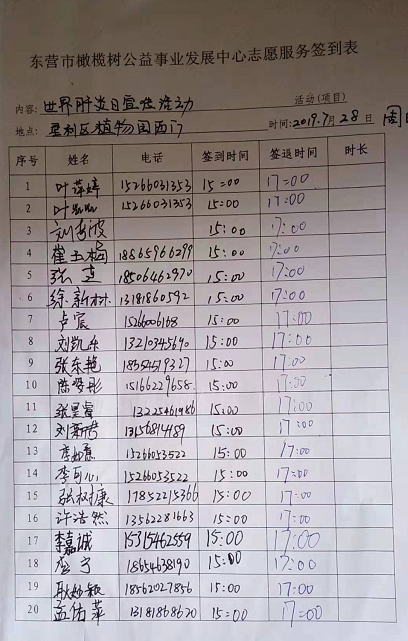 东营市橄榄树公益事业发展中心志愿服务签到表
内容: 世界肝炎日宣传活动 活动(项目)
地点: 垦利区植物园西门 时间: 2019.7月28日 周日
序号 姓名 电话 签到时间 签退时间 时长
1 叶萍婷 15266031353 15:00 17:00
2 叶 15266031353 15:00 17:00
3 刘海波 15:00 17:00
4 崔玉梅 18865966299 15:00 17:00
5 张 18506462970 15:00 17:00
6 徐新林 13181860592 15:00 17:00
7 卢宸 15:00 17:00
8 刘凯乐 13210345690 15:00 17:00
9 张东艳 18354519327 15:00 17:00
10 陈梦彤 15166229658 15:00 17:00
11 张昱睿 15:00 17:00
12 刘新浩 13156814489 15:00 17:00
13 李如意 15266053522 15:00 17:00
14 李可心 15266053522 15:00 17:00
15 张树康 17852215366 15:00 17:00
16 许浩然 13562281663 15:00 17:00
17 李嘉诚 15315462559 15:00 17:00
18 宁 18654638190 15:00 17:00
19 耿妙颖 18562027856 15:00 17:00
20 孟佑萍 13181868620 15:00 17:00